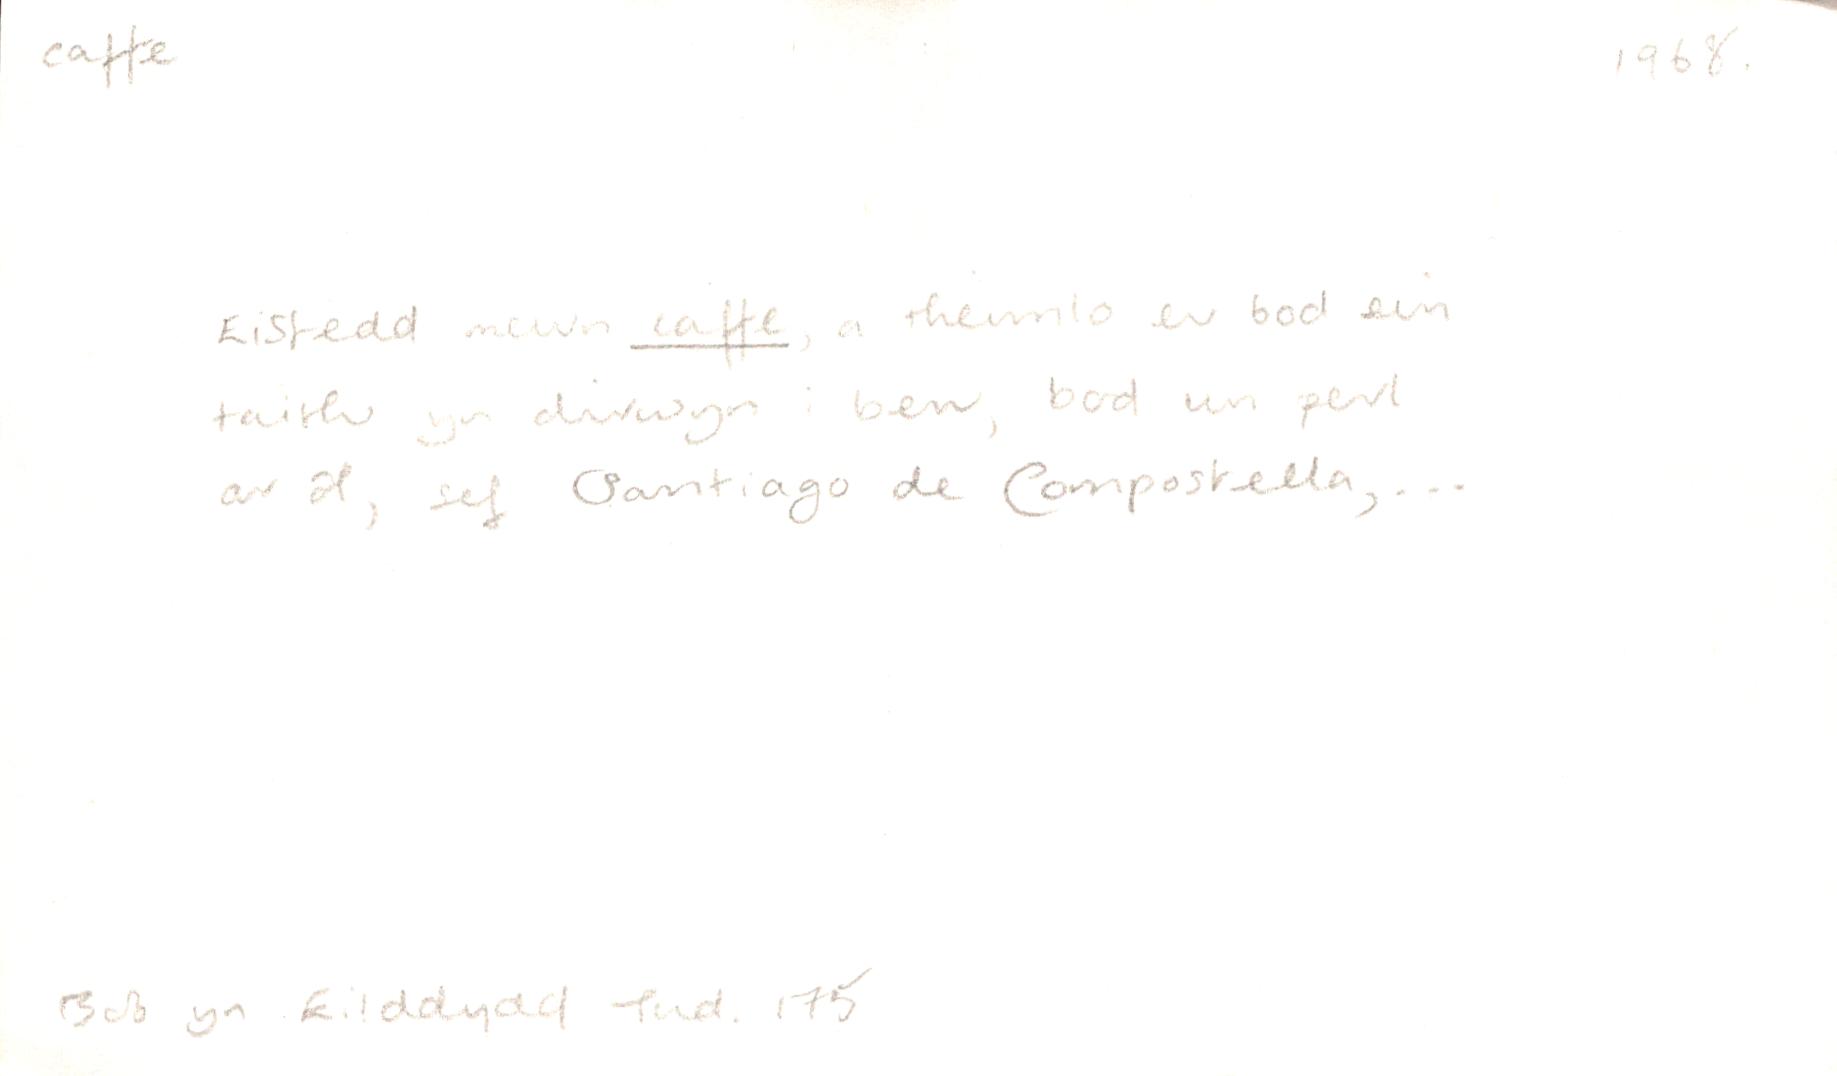 caffe 1968.
Eistedd mewn caffe, a theimlo er bod ein
taith yn dirwyn i ben, bod un perl
ar ôl, sef Santiago de Compostella,...
Bob yn Eilddydd Tud. 175